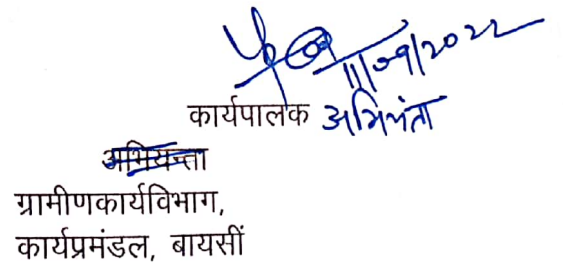 11/09/2022
कार्यपालक अभियंता
अभियन्ता
ग्रामीणकार्यविभाग,
कार्यप्रमंडल, बायसीं